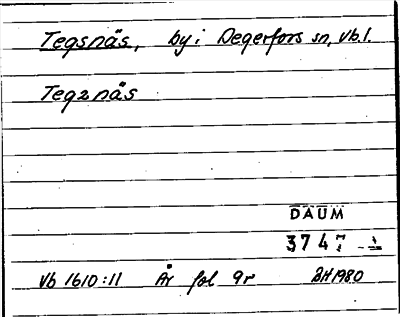 Tegsnäs, by i Degerfors sn, Vb.l.
Tegznäs
DAUM
3747
Vb 1610:11 År fol 9r BH 1980